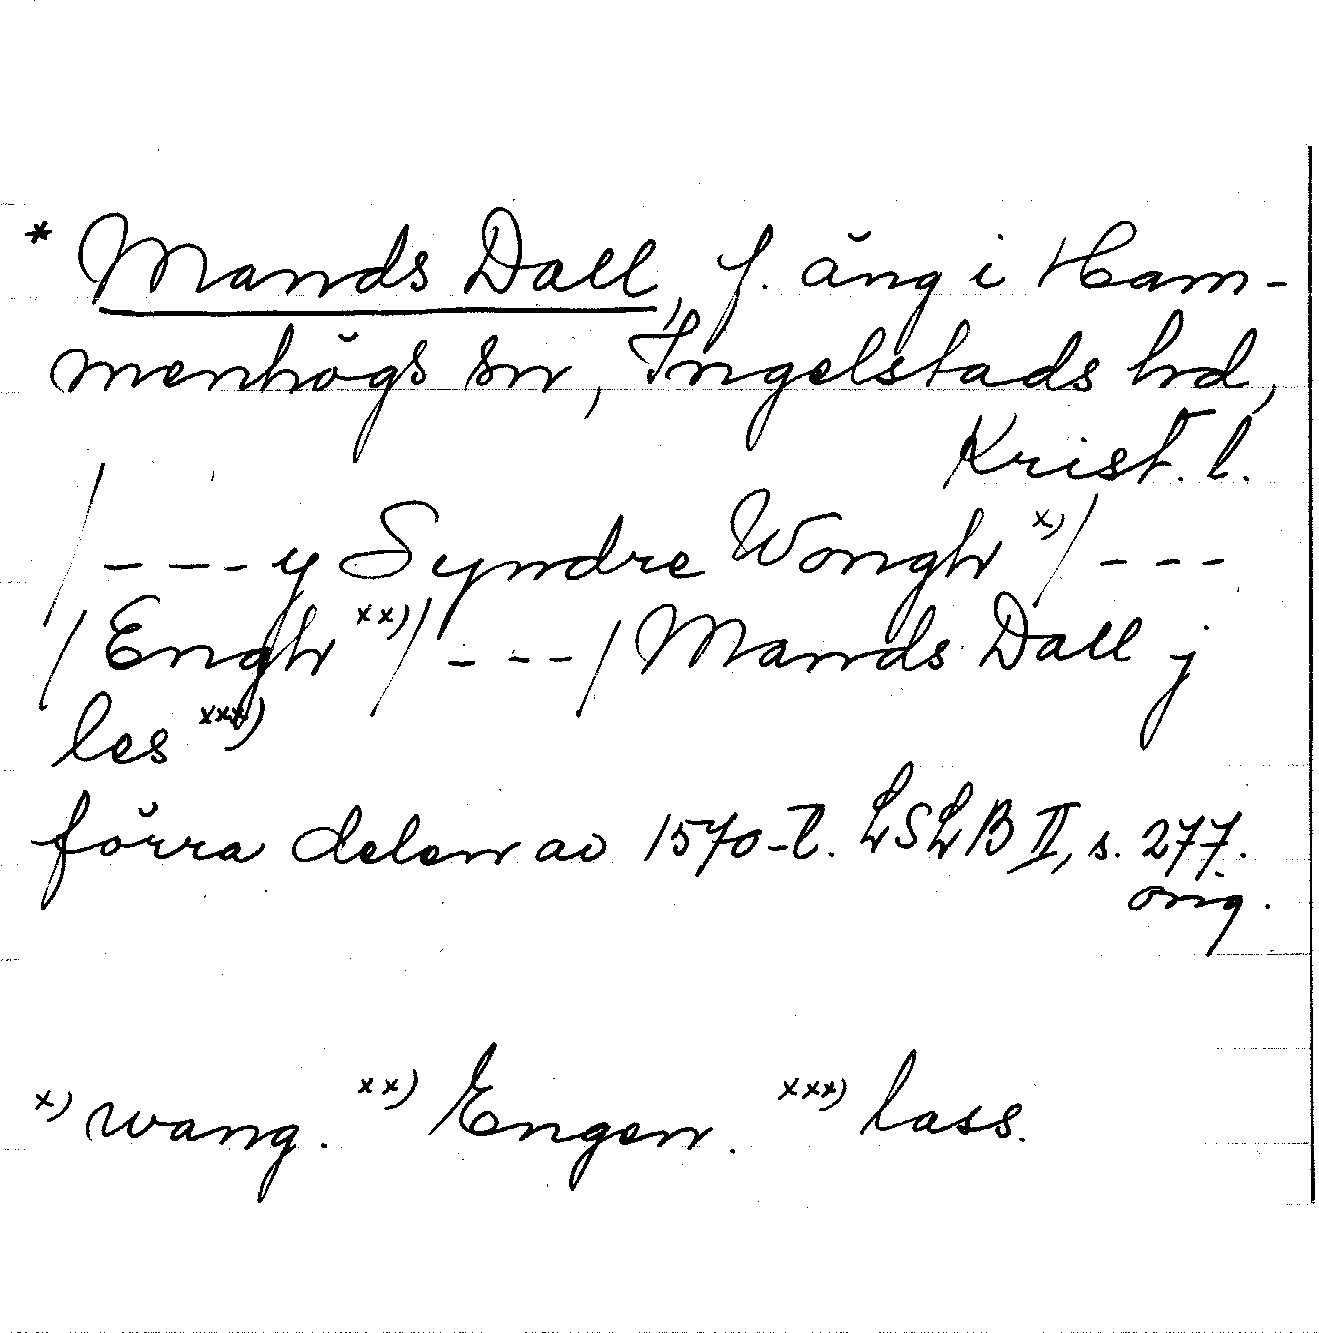 * Mands Dall, f. äng i Ham-
menhögs sn, Ingelstads hd,
Krist. l.
/ --- y Syndre Wongh x) / ---
/ Engh xx) / --- / Mands Dall j
les xxx)
förra delen av 1570-t. LSLB II, s. 277.
orig.
x) wang. xx) Engen. xxx) lass.